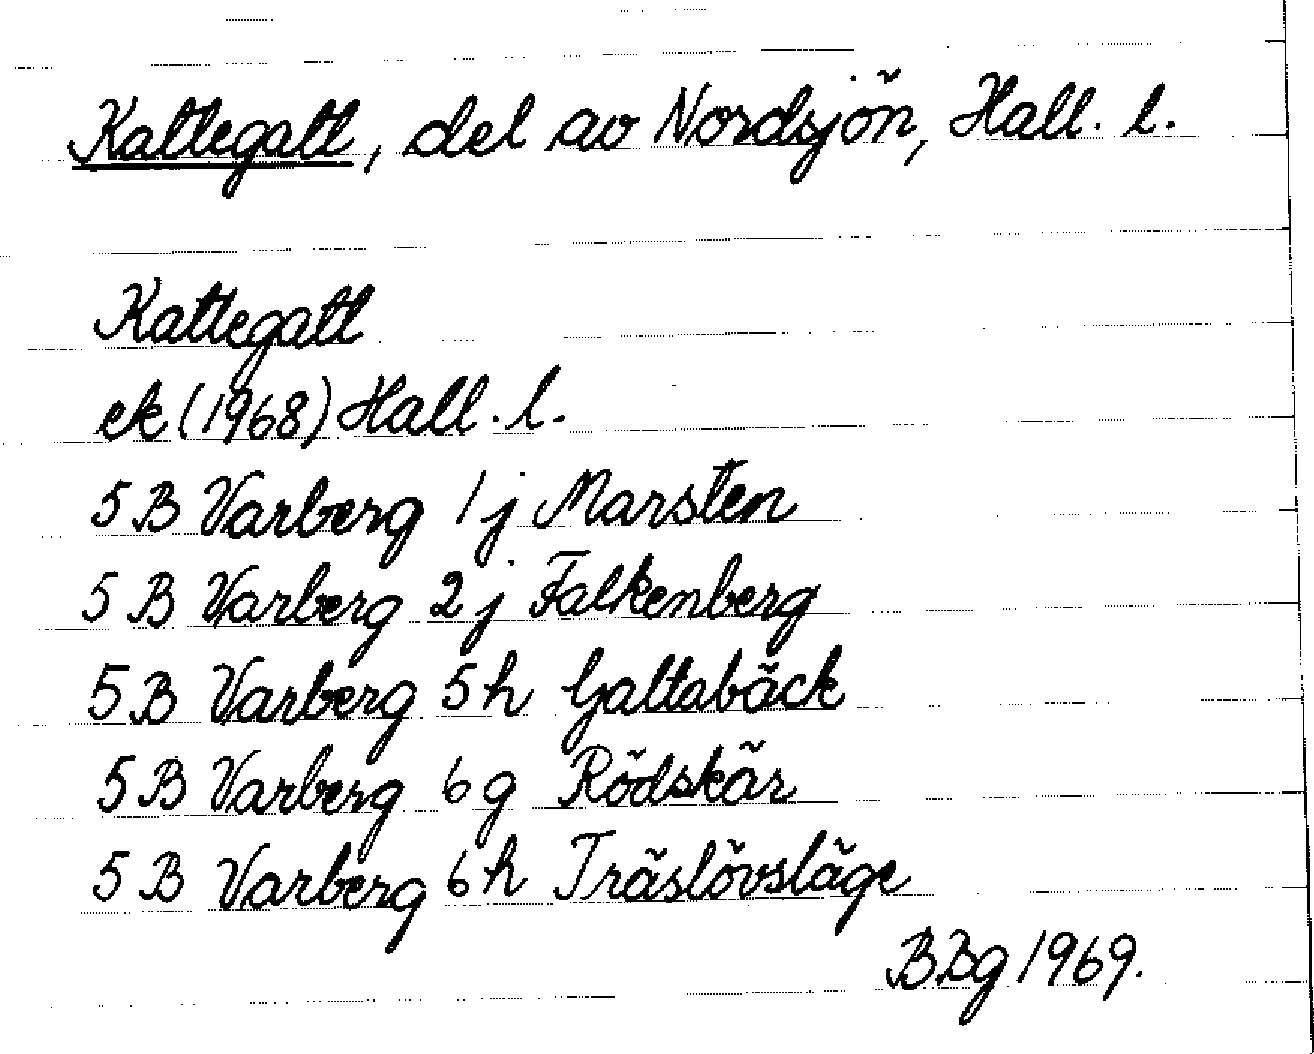 Kattegatt, del av Nordsjön, Hall. l.
Kattegatt
ek (1968) Hall. l.
5 B Varberg 1 j Marsten
5 B Varberg 2 j Falkenberg
5 B Varberg 5 h Galtabäck
5 B Varberg 6 g Rödskär
5 B Varberg 6 h Träslövsläge
BBg 1969.